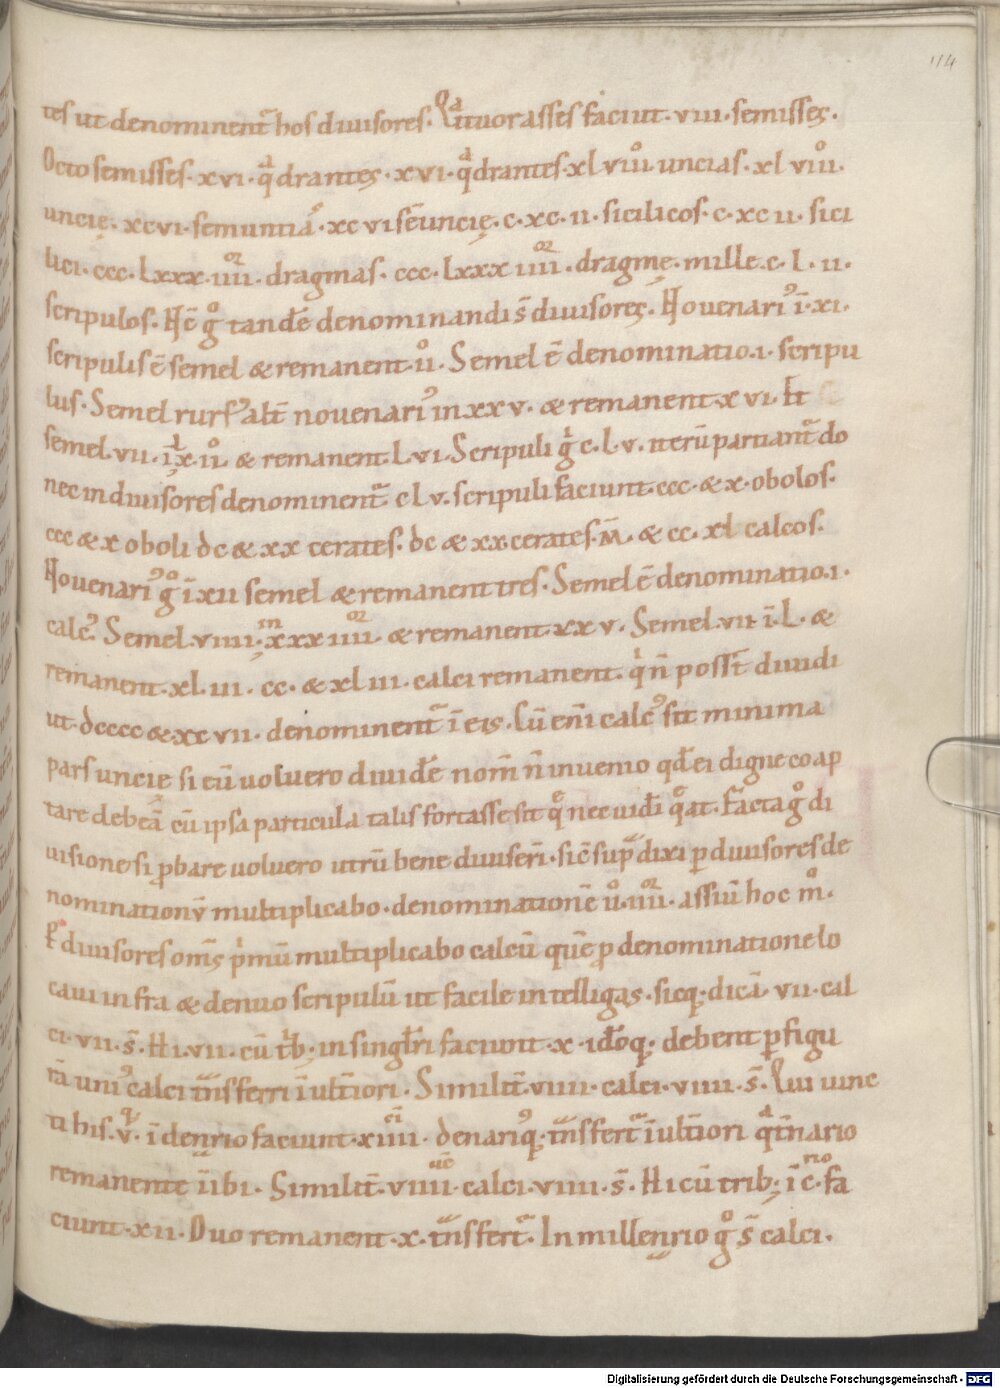 114
tes ut denominent̄ hos diuisores. Qͣttuor asses faciut. viii. semisses.
Octo semisses. xvi. qͣdrantes. xvi. qͣdrantes. xl viiiͦ. uncias. xl viiiͦ.
uncię. xcvi. semuntiāͦ. xc vi sēuncię. c. xc. ii. sicilicos. c. xc ii. sici
lici. ccc. lxxx. iiii. dragmas. ccc. lxxx iiii. dragmę. mille. c. l. ii.
scripulos. Hēͨ gͦ tandē denominandi s̄ diuisores. Nouenariꝰ ī. xi.
scripulis ē semel & remanent. iiͦ. Semel ē denominatio. i. scripu
lus. Semel rursꝰ alt̄ nouenariꝰ in xx v. & remanent. x vi. ł
semel. vii. ī x. iiͦ & remanent. l. vi. Scripuli gͥ c. l. v. iterū partiant̄ do
nec in diuisores denominent̄ c l v. scripuli faciunt. ccc. & x. obolos.
ccc & x oboli dc & xx cerates. dc & xx cerates. M̄. & cc. xl calcos.
Nouenariꝰ gͦ ī xii semel & remanent tres. Semel ē denominatio. i.
calcꝰ. Semel. viiii. in xxx iiii & remanent. xx v. Semel. vii ī. L. &
remanent. xl. iii. cc. & xl iii. calci remanent. qͥ n̄ poss̄t diuidi
ut. dcccc & xx vii. denominent̄ ī eis. Cū eni calcꝰ sit minima
pars uncie si eū uoluero diuidē nom̄ n̄ inuenio qd̄ ei digne coap
tare debeā cū ipsa particula talis fortasse sit qͤ nec uidi qͤat. Facta gͦ di
uisione si ꝓbare uoluero utrū bene diuiseri. sic̄ sup̄ dixi ꝑ diuisores de
nominationū multiplicabo. denominationē iiͦ. iiii. assiū hoc mͦ.
Ꝑ diuisores om̄s pͥmū multiplicabo calcū quē ꝑ denominatione lo
caui infra & denuo scripulū ut facile intelligas. sicq; dicā. vii. cal
ci. vii. s̄. Hi. vii. cū tͥb; in singłri faciunt. x. idōq; debent p̄figu
rā uniꝰ calci tͣnsferri ī ult̄iori. Similit̄. viiii. calci. viiii. s̄. Qui iunc
ti his. v. ī denario faciunt. xiiii. denariꝰq; tͣnsfert̄ ī ult̄iori qͣt̄nario
remanente iībi. Similit̄. viiii. calci. viiii. s̄. Hi cū trib; ī c. fa
ciunt. xii. Duo remanent. x. tͣnsfert̄. In millenrio gͦ s̄ calci.
Digitalisierung gefördert durch die Deutsche Forschungsgemeinschaft - DFG